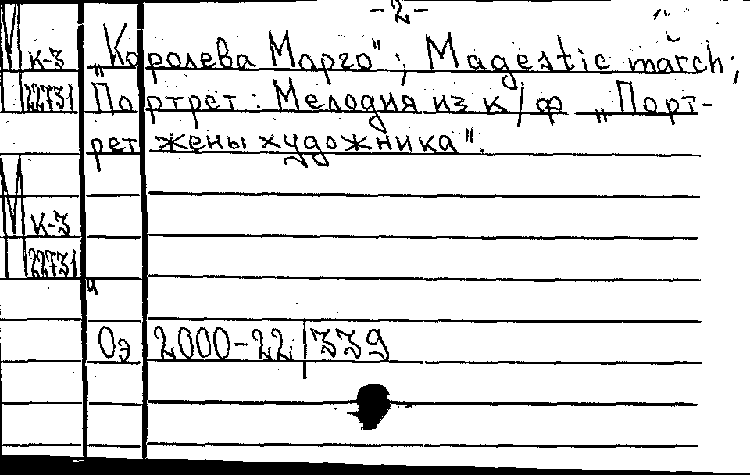 -2-
М к-3 „Королева Марго"; Magestic march;
22731 Портрет: Мелодия из к/ф „Порт-
рет жены художника".
М к-3
22731
и
Оэ 2000-22 339